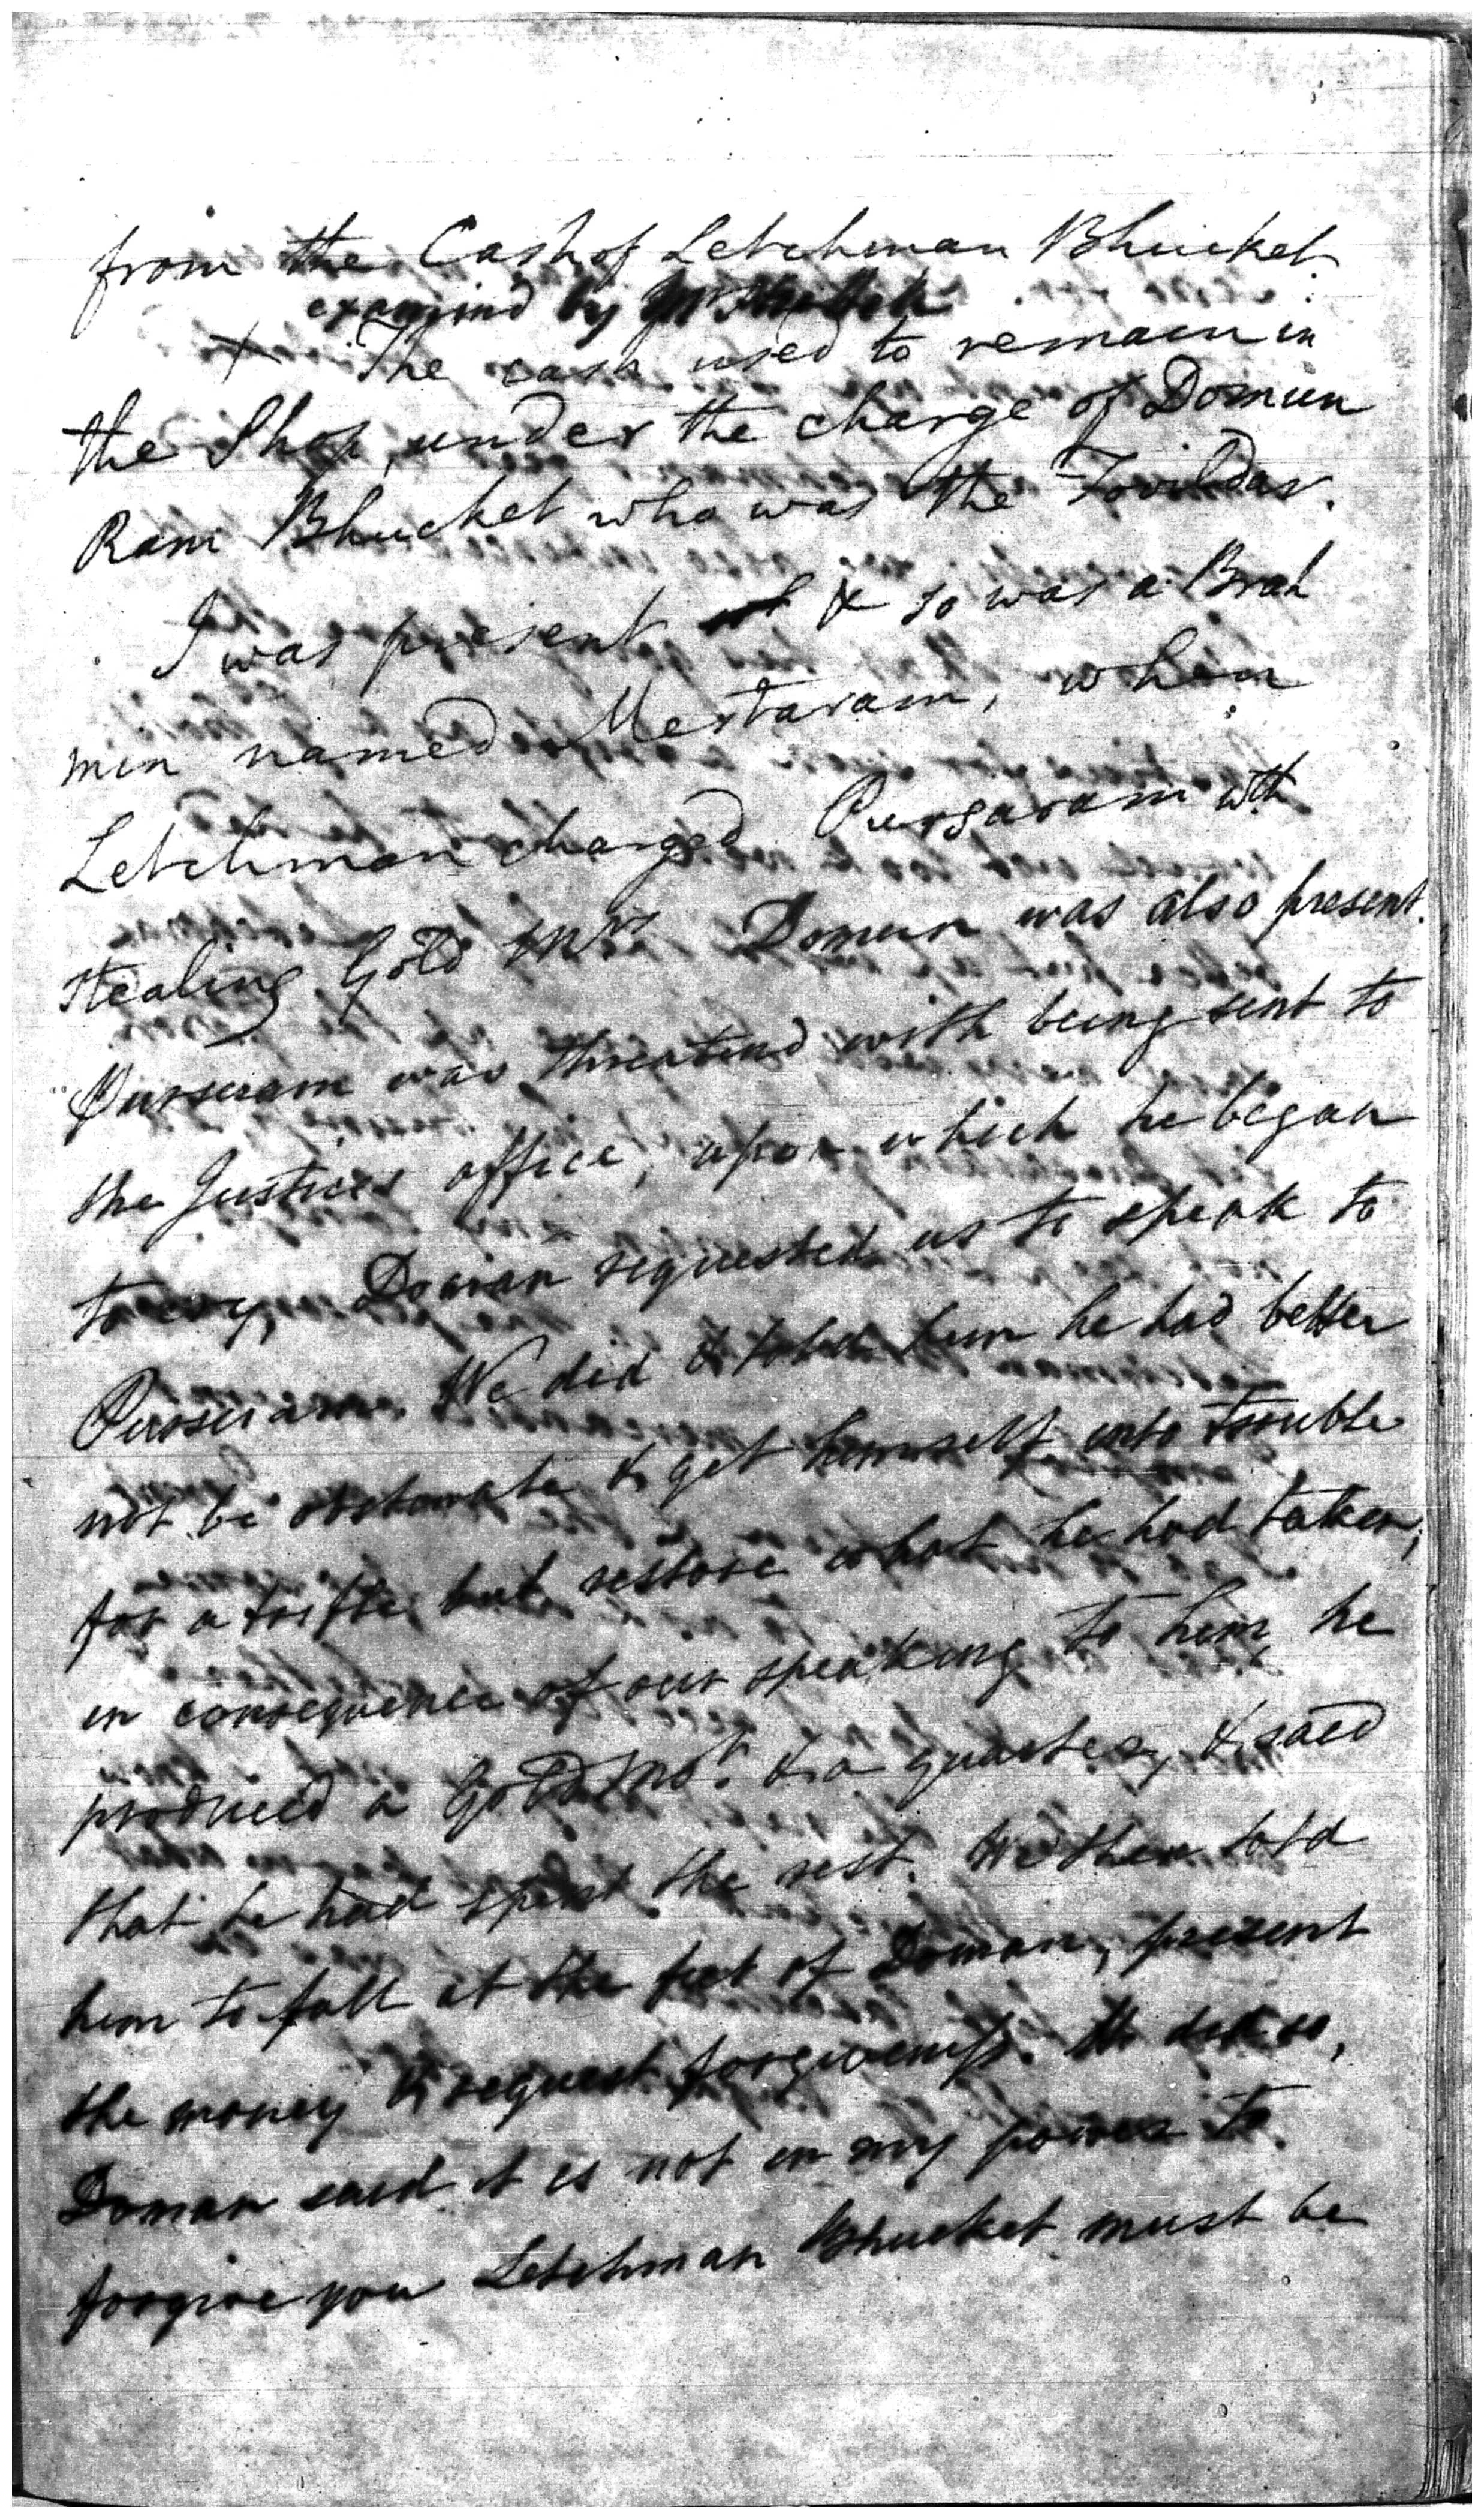 from the Cash of Letchman Bhucket.
examined by Mr
X The cash used to remain in
the Shop, under the charge of Domun
Ram Bhucket who was the Tovildar.
I was present & so was a Brah
min named Mestaram, when
Letchman charged Pursaram wth
stealing Gold Mrs Domun was also present.
Pursuram was threatend with being sent to
the Justices office, upon which he began
to cry, Doman requested us to speak to
Pursuram. We did & told him he had better
not be obstinate & get himself into trouble
for a trifle but restore what he had taken;
in consequence of our speaking to him he
produced a Gold Mr. & a quarter, & said
that he had spent the rest. We then told
him to fall at the feet of Doman, present
the money & request forgiveness. He did so,
Doman said it is not in my power to
forgive you Letchman Bhucket must be